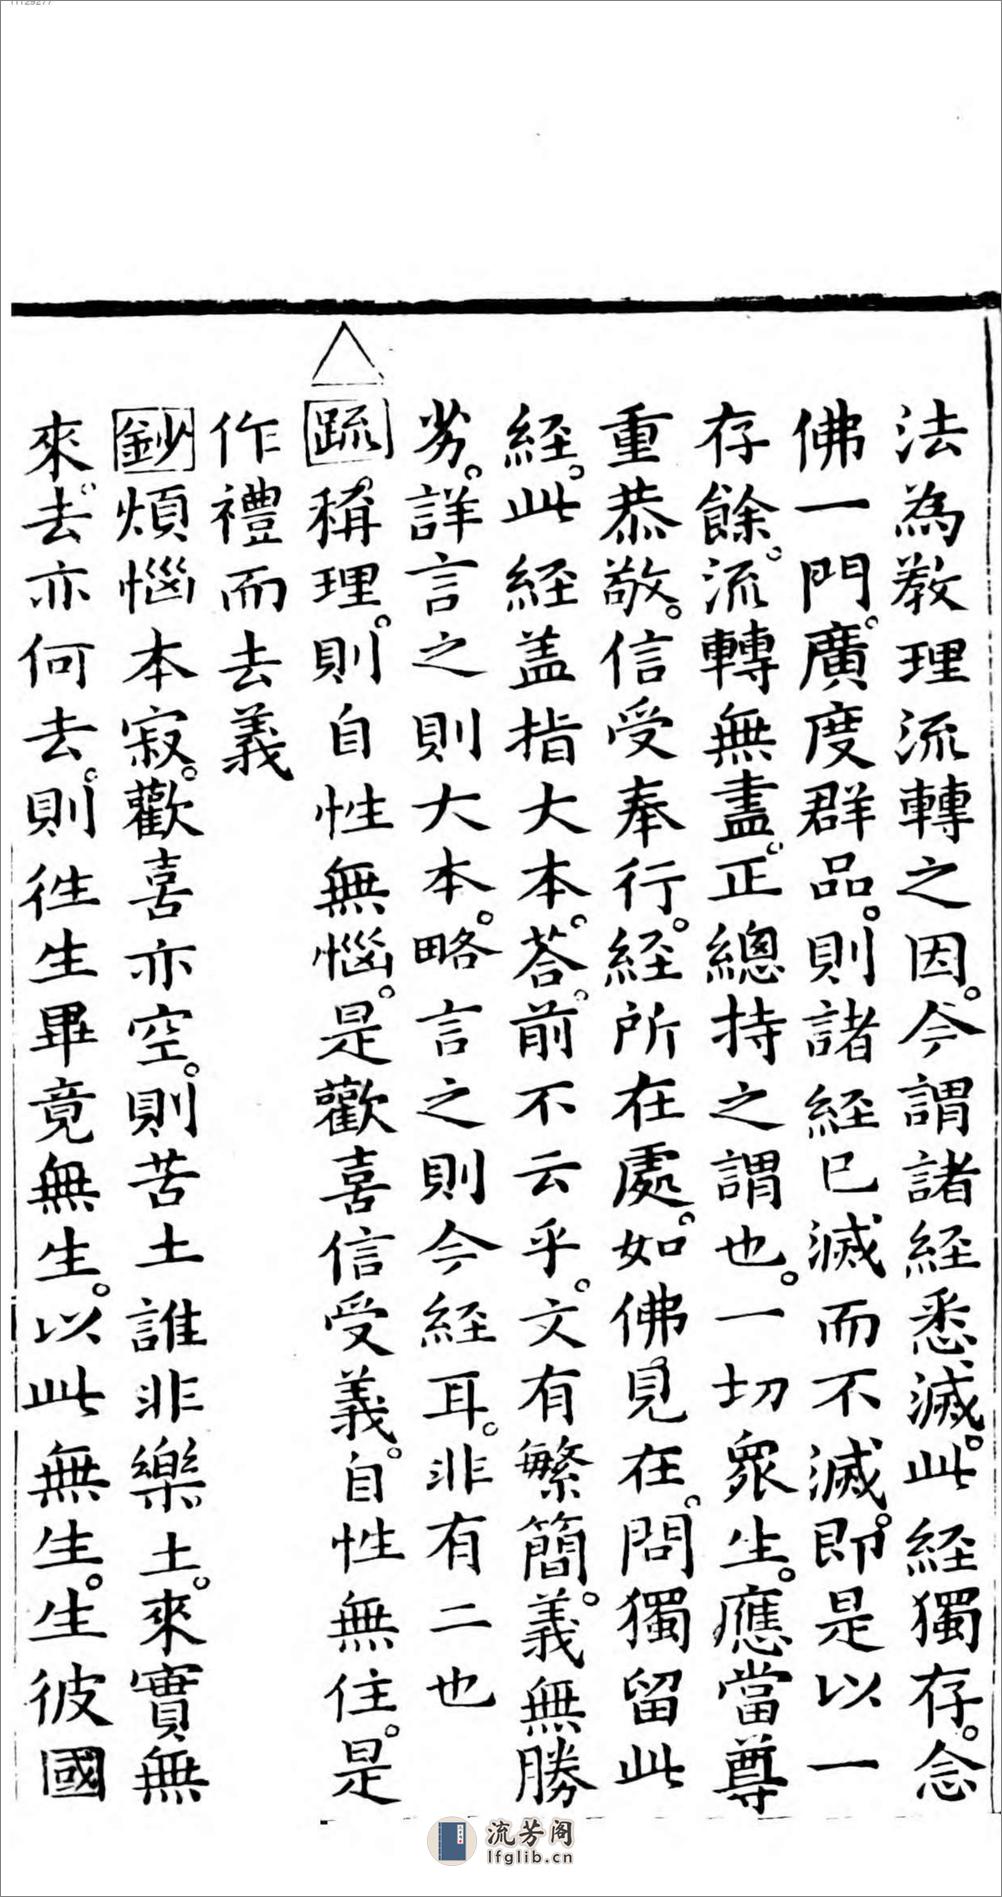 11129277
法為教理流轉之因。今謂諸經悉滅。此經獨存。念
佛一門。廣度群品。則諸經已滅而不滅。即是以一
存餘。流轉無盡。正總持之謂也。一切衆生。應當尊
重恭敬。信受奉行。經所在處。如佛見在。問獨留此
經。此經蓋指大本。荅。前不云乎。文有繁簡。義無勝
劣。詳言之則大本。略言之則今經耳。非有二也
△
疏。稱理。則自性無惱。是歡喜信受義。自性無住。是
作禮而去義
鈔煩惱本寂。歡喜亦空。則苦土誰非樂土。來實無
來。去亦何去。則徃生畢竟無生。以此無生。生彼國
流芳阁
lfglib.cn